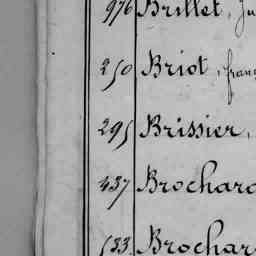 976 Brillet, Ju
250 Briot, franç
295 Brissier,
437 Brochard
533 Brochar